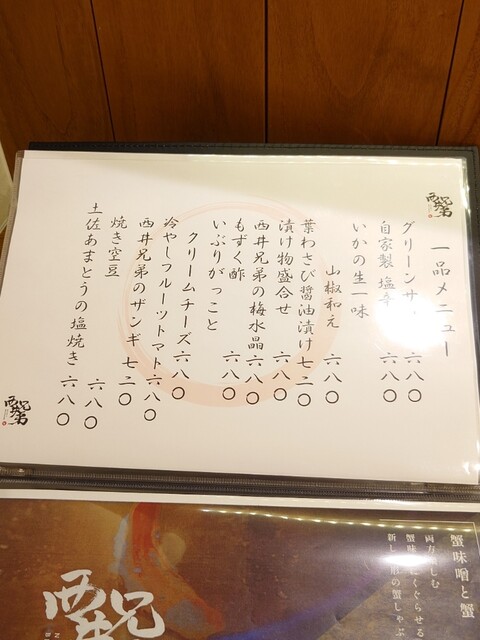 一品メニュー
グリーンサ 六八〇
自家製塩辛 六八〇
いかの生一味
山椒和え 六八〇
葉わさび醤油漬け 七二〇
漬け物盛合せ 六八〇
西井兄弟の梅水晶 六八〇
もずく酢 六八〇
いぶりがっこと
クリームチーズ 六八〇
冷やしフルーツトマト 六八〇
西井兄弟のザンギ 七二〇
焼き空豆 六八〇
土佐あまとうの塩焼き 六八〇
蟹味噌と蟹
両方楽しむ
蟹味噌にくぐらせる
新しい形の蟹しゃぶ
西井兄